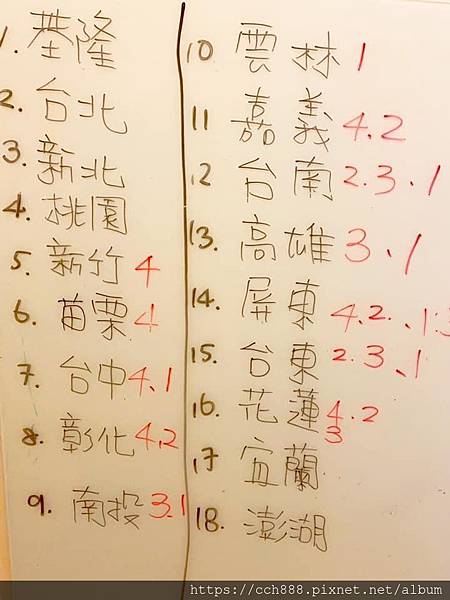 1. 基隆
2. 台北
3. 新北
4. 桃園
5. 新竹 4
6. 苗栗 4
7. 台中 4.1
8. 彰化 4.2
9. 南投 3.1
10 雲林 1
11 嘉義 4.2
12 台南 2.3、1
13. 高雄 3、1
14. 屏東 4.2、1.3
15. 台東 2.3、1
16. 花蓮 4.2
3
17 宜蘭
18. 澎湖
https://cch888.pixnet.net/album